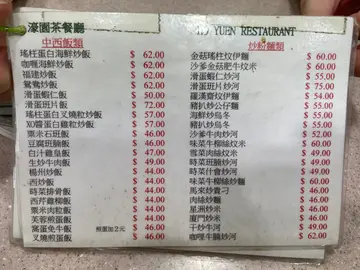 濠園茶餐廳
HO YUEN RESTAURANT
中西飯類
瑤柱蛋白海鮮炒飯 $ 62.00
咖喱海鮮炒飯 $ 62.00
福建炒飯 $ 62.00
鴛鴦炒飯 $ 62.00
滑蛋蝦仁飯 $ 50.00
滑蛋班片飯 $ 72.00
瑤柱蛋白叉燒粒炒飯 $ 57.00
XO醬蛋白雞粒炒飯 $ 57.00
粟米石班飯 $ 46.00
豆腐班腩飯 $ 46.00
白汁雞皇飯 $ 47.00
生炒牛肉飯 $ 49.00
楊州炒飯 $ 44.00
西炒飯 $ 44.00
時菜排骨飯 $ 44.00
西芹雞柳飯 $ 44.00
粟米肉粒飯 $ 44.00
芙蓉煎蛋飯 $ 44.00
窩蛋免牛飯 煎蛋加2元 $ 46.00
叉燒煎蛋飯 $ 46.00
炒粉麵類
金菇瑤柱炆伊麵 $ 60.00
沙爹金菇肥牛炆米 $ 60.00
滑蛋蝦仁炒河 $ 55.00
滑蛋班片炒河 $ 75.00
羅漢齋炆伊麵 $ 54.00
豬扒炒公仔麵 $ 50.00
海鮮炒烏冬 $ 55.00
豬扒炒烏冬 $ 55.00
沙爹牛肉炒河 $ 52.00
味菜牛柳絲炆米 $ 60.00
雪菜肉絲炆米 $ 49.00
時菜班腩炒河 $ 49.00
時菜什會炒河 $ 49.00
味菜牛柳絲炒河 $ 60.00
馬來炒貴刁 $ 46.00
肉絲炒麵 $ 46.00
星洲炒米 $ 46.00
廈門炒米 $ 46.00
干炒牛河 $ 49.00
咖喱牛腩炒河 $ 62.00